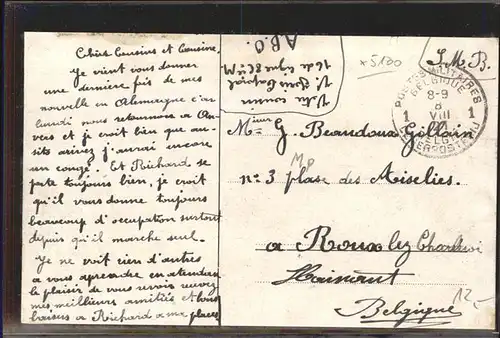 Chers Cousins et Cousine.
Je vient vous donner
une dernière fois de mes
nouvelle en Allemagne c'ar
lundi nous retournons a An-
vers et je croit bien que au-
sitot arriver j'aurai encore
un congé. Et Richard se
porte toujours bien, je croit
qu'il vous donne toujours
beaucoup d'occupation surtout
depuis qu'il marche seul.
Je ne voit rien d'autres
a vous apprendre en attendant
le plaisir de vous revoir recevez
mes meilleurs amitiés et bons
baisers a Richard a ma place
A.B.O.
x5100
S.M.B.
POSTES MILITAIRES
BELGIQUE
1 8-9 1
8
VIII
Mme G. Beaudoux Gollain
n:3 plase des Aiselies.
a Roux lez Charleroi
Hainaut
Belgique
12,-